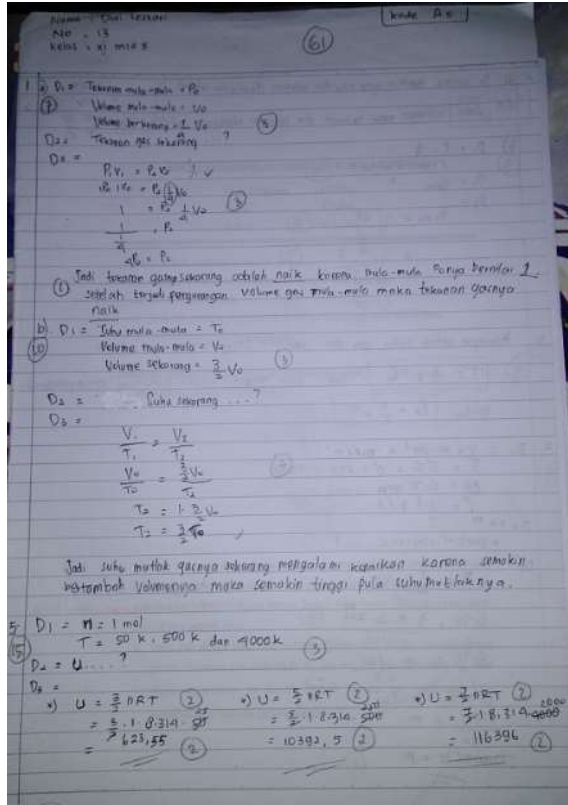 Nama : Dwi Lestari
No : 13
Kelas : XI MIA 5
Kode A5
61
1. a) D1 = Tekanan mula-mula = P0
7
Volume mula-mula = V0
Volume berkurang = 1/4 V0
3
D2 = Tekanan gas sekarang ?
D3 =
P1 V1 = P2 V2
P0 V0 = P2 (1/4) V0
3
1 = P2 1/4 V0
1 / 1/4 = P2
4P0 = P2
Jadi tekanan gasnya sekarang adalah naik karena mula-mula hanya bernilai 1
1
setelah terjadi pengurangan volume gas mula-mula maka tekanan gasnya
naik
b) D1 = Suhu mula-mula = T0
10
Volume mula-mula = V0
Volume sekarang = 3/2 V0
3
D2 = Suhu sekarang ...?
D3 =
V1/T1 = V2/T2
V0/T0 = 3/2 V0 / T2
T2 = 1. 3/2 V0
T2 = 3/2 T0
Jadi suhu mutlak gasnya sekarang mengalami kenaikan karena semakin
bertambah volumenya maka semakin tinggi pula suhu mutlaknya.
5. D1 = n = 1 mol
15
T = 50 k, 500 k dan 4000 k
3
D2 = U....?
D3 =
*) U = 3/2 nRT 2 *) U = 5/2 nRT 2 *) U = 7/2 nRT 2
= 3/2 . 1 . 8.314 . 50 25 = 5/2 . 1 . 8.314 . 500 250 = 7/2 . 1 . 8.314 4000 2000
= 623,55 2 = 10392,5 2 = 116396 2